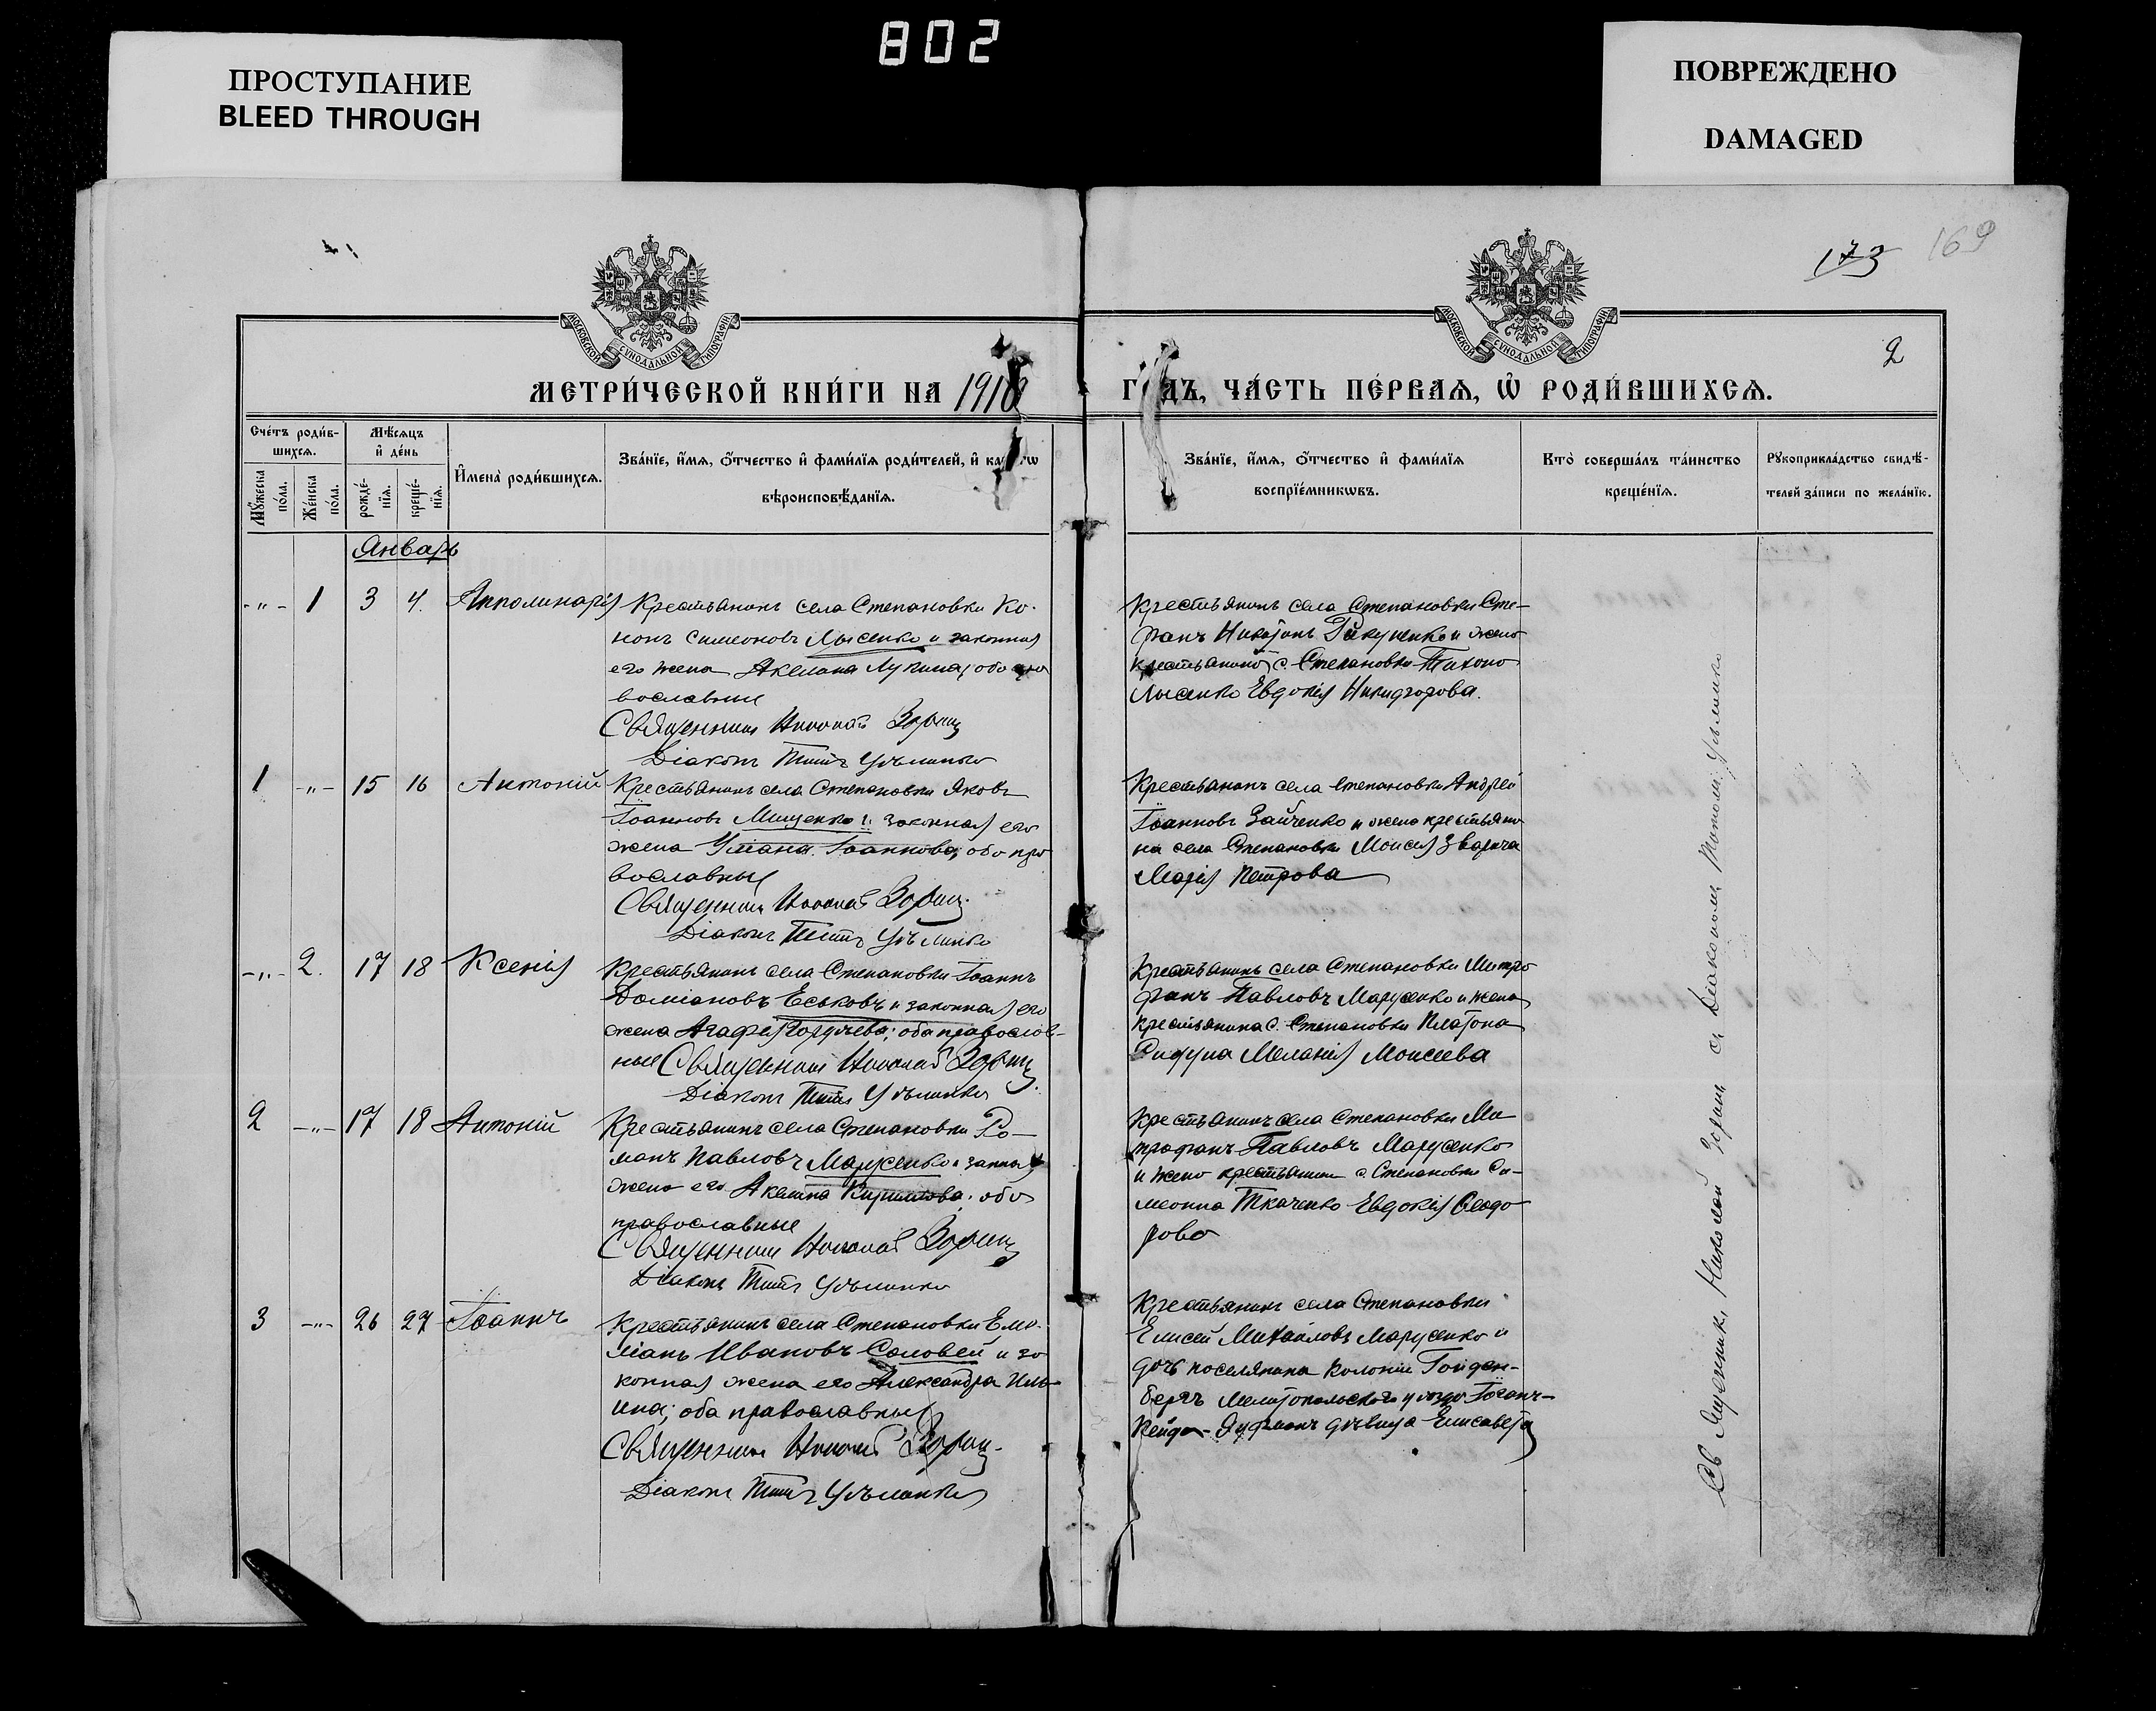 802
ПРОСТУПАНИЕ
BLEED THROUGH
ПОВРЕЖДЕНО
DAMAGED
169
173
2
МОСКОВСКОЙ СѴНОДАЛЬНОЙ ТИПОГРАФІИ
МОСКОВСКОЙ СѴНОДАЛЬНОЙ ТИПОГРАФІИ
МЕТРИ́ЧЕСКОЙ КНИ́ГИ НА 1910 ГОДЪ, ЧА́СТЬ ПЕ́РВАѦ, Ѽ РОДИ́ВШИХСѦ.
Сче́тъ роди́в-
шихсѧ.
Мꙋ́жеска
по́ла.
Же́нска
по́ла.
Мѣ́сѧцъ
и҆ де́нь
рожде́-
нїѧ.
креще́-
нїѧ.
И҆мена̀ роди́вшихсѧ.
Зва́нїе, и҆́мѧ, о҆́тчество и҆ фами́лїѧ роди́телей, и҆
вѣроисповѣ́данїѧ.
Зва́нїе, и҆́мѧ, о҆́тчество и҆ фами́лїѧ
воспрїе́мникѡвъ.
Кто̀ соверша́лъ та́инство
креще́нїѧ.
Рꙋкоприкла́дство свидѣ́-
телей за́писи по жела́нїю.
Январь
-"- 1 3 4. Апполинарія
Крестьянинъ села Степановки Ко-
нонъ Симеоновъ Лысенко и законная
его жена Акелина Лукина; оба пра
вославные
Священникъ Николай Зоринъ
Діаконъ Титъ
Крестьянинъ села Степановки Сте-
фанъ и жена
крестьянина с. Степановки Тихона
Лысенко Евдокія Никифорова.
1 -"- 15 16 Антоній
Крестьянинъ села Степановки Яковъ
Іоанновъ Мищенко и законная его
жена Іоаннова; оба пра
вославные
Священникъ Николай Зоринъ
Діаконъ Титъ
Крестьянинъ села Степановки Андрей
Іоанновъ Зайченко и жена крестьяни
на села Степановки Моисея Зварича
Марія Петрова
-"- 2. 17 18 Ксенія
Крестьянинъ села Степановки Іоаннъ
Даміановъ Еськовъ и законная его
жена Агафія Гордѣева; оба православ-
ные Священникъ Николай Зоринъ
Діаконъ Титъ
Крестьянинъ села Степановки Митро
фанъ Павловъ Марусенко и жена
крестьянина с. Степановки Платона
Меланія Моисеева
2 -"- 17 18 Антоній
Крестьянинъ села Степановки Ро-
манъ Павловъ Марусенко и законная
жена его Акелина Кириллова; оба
православные
Священникъ Николай Зоринъ
Діаконъ Титъ
Крестьянинъ села Степановки Ми
трофанъ Павловъ Марусенко
и жена крестьянина с. Степановки Си-
меона Ткаченко Евдокія Ѳеодо
рова
3 -"- 26 27 Іоаннъ
Крестьянинъ села Степановки Еми-
ліанъ Ивановъ Соловей и за
конная жена его Александра Иль
ина; оба православные
Священникъ Николай Зоринъ
Діаконъ Титъ
Крестьянинъ села Степановки
Елисей Михайловъ Марусенко и
дочь поселянина колоніи Гойден-
бергъ Мелитопольскаго уѣзда
дѣвица Елисавета
Священникъ Николай Зоринъ съ Діакономъ